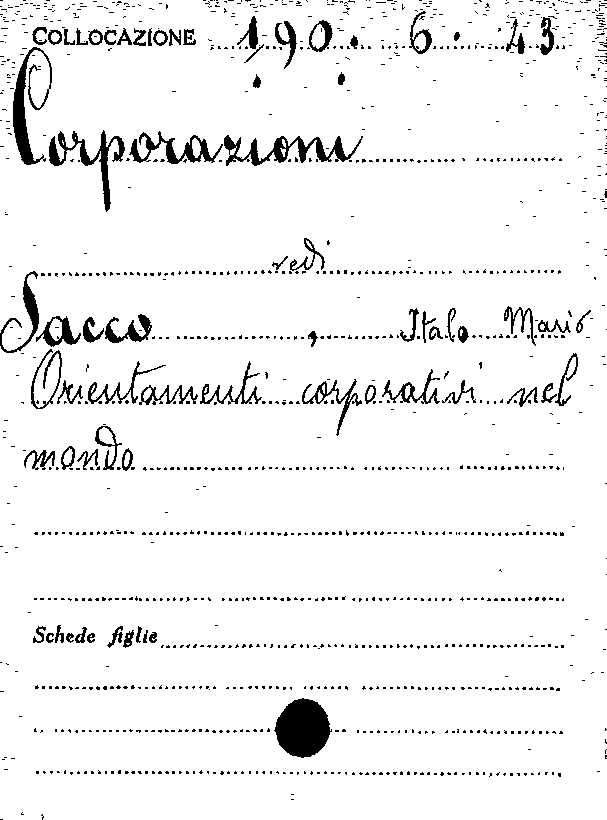 COLLOCAZIONE 190. 6. 43
Corporazioni
vedi
Sacco, Italo Mario
Orientamenti corporativi nel
mondo
Schede figlie